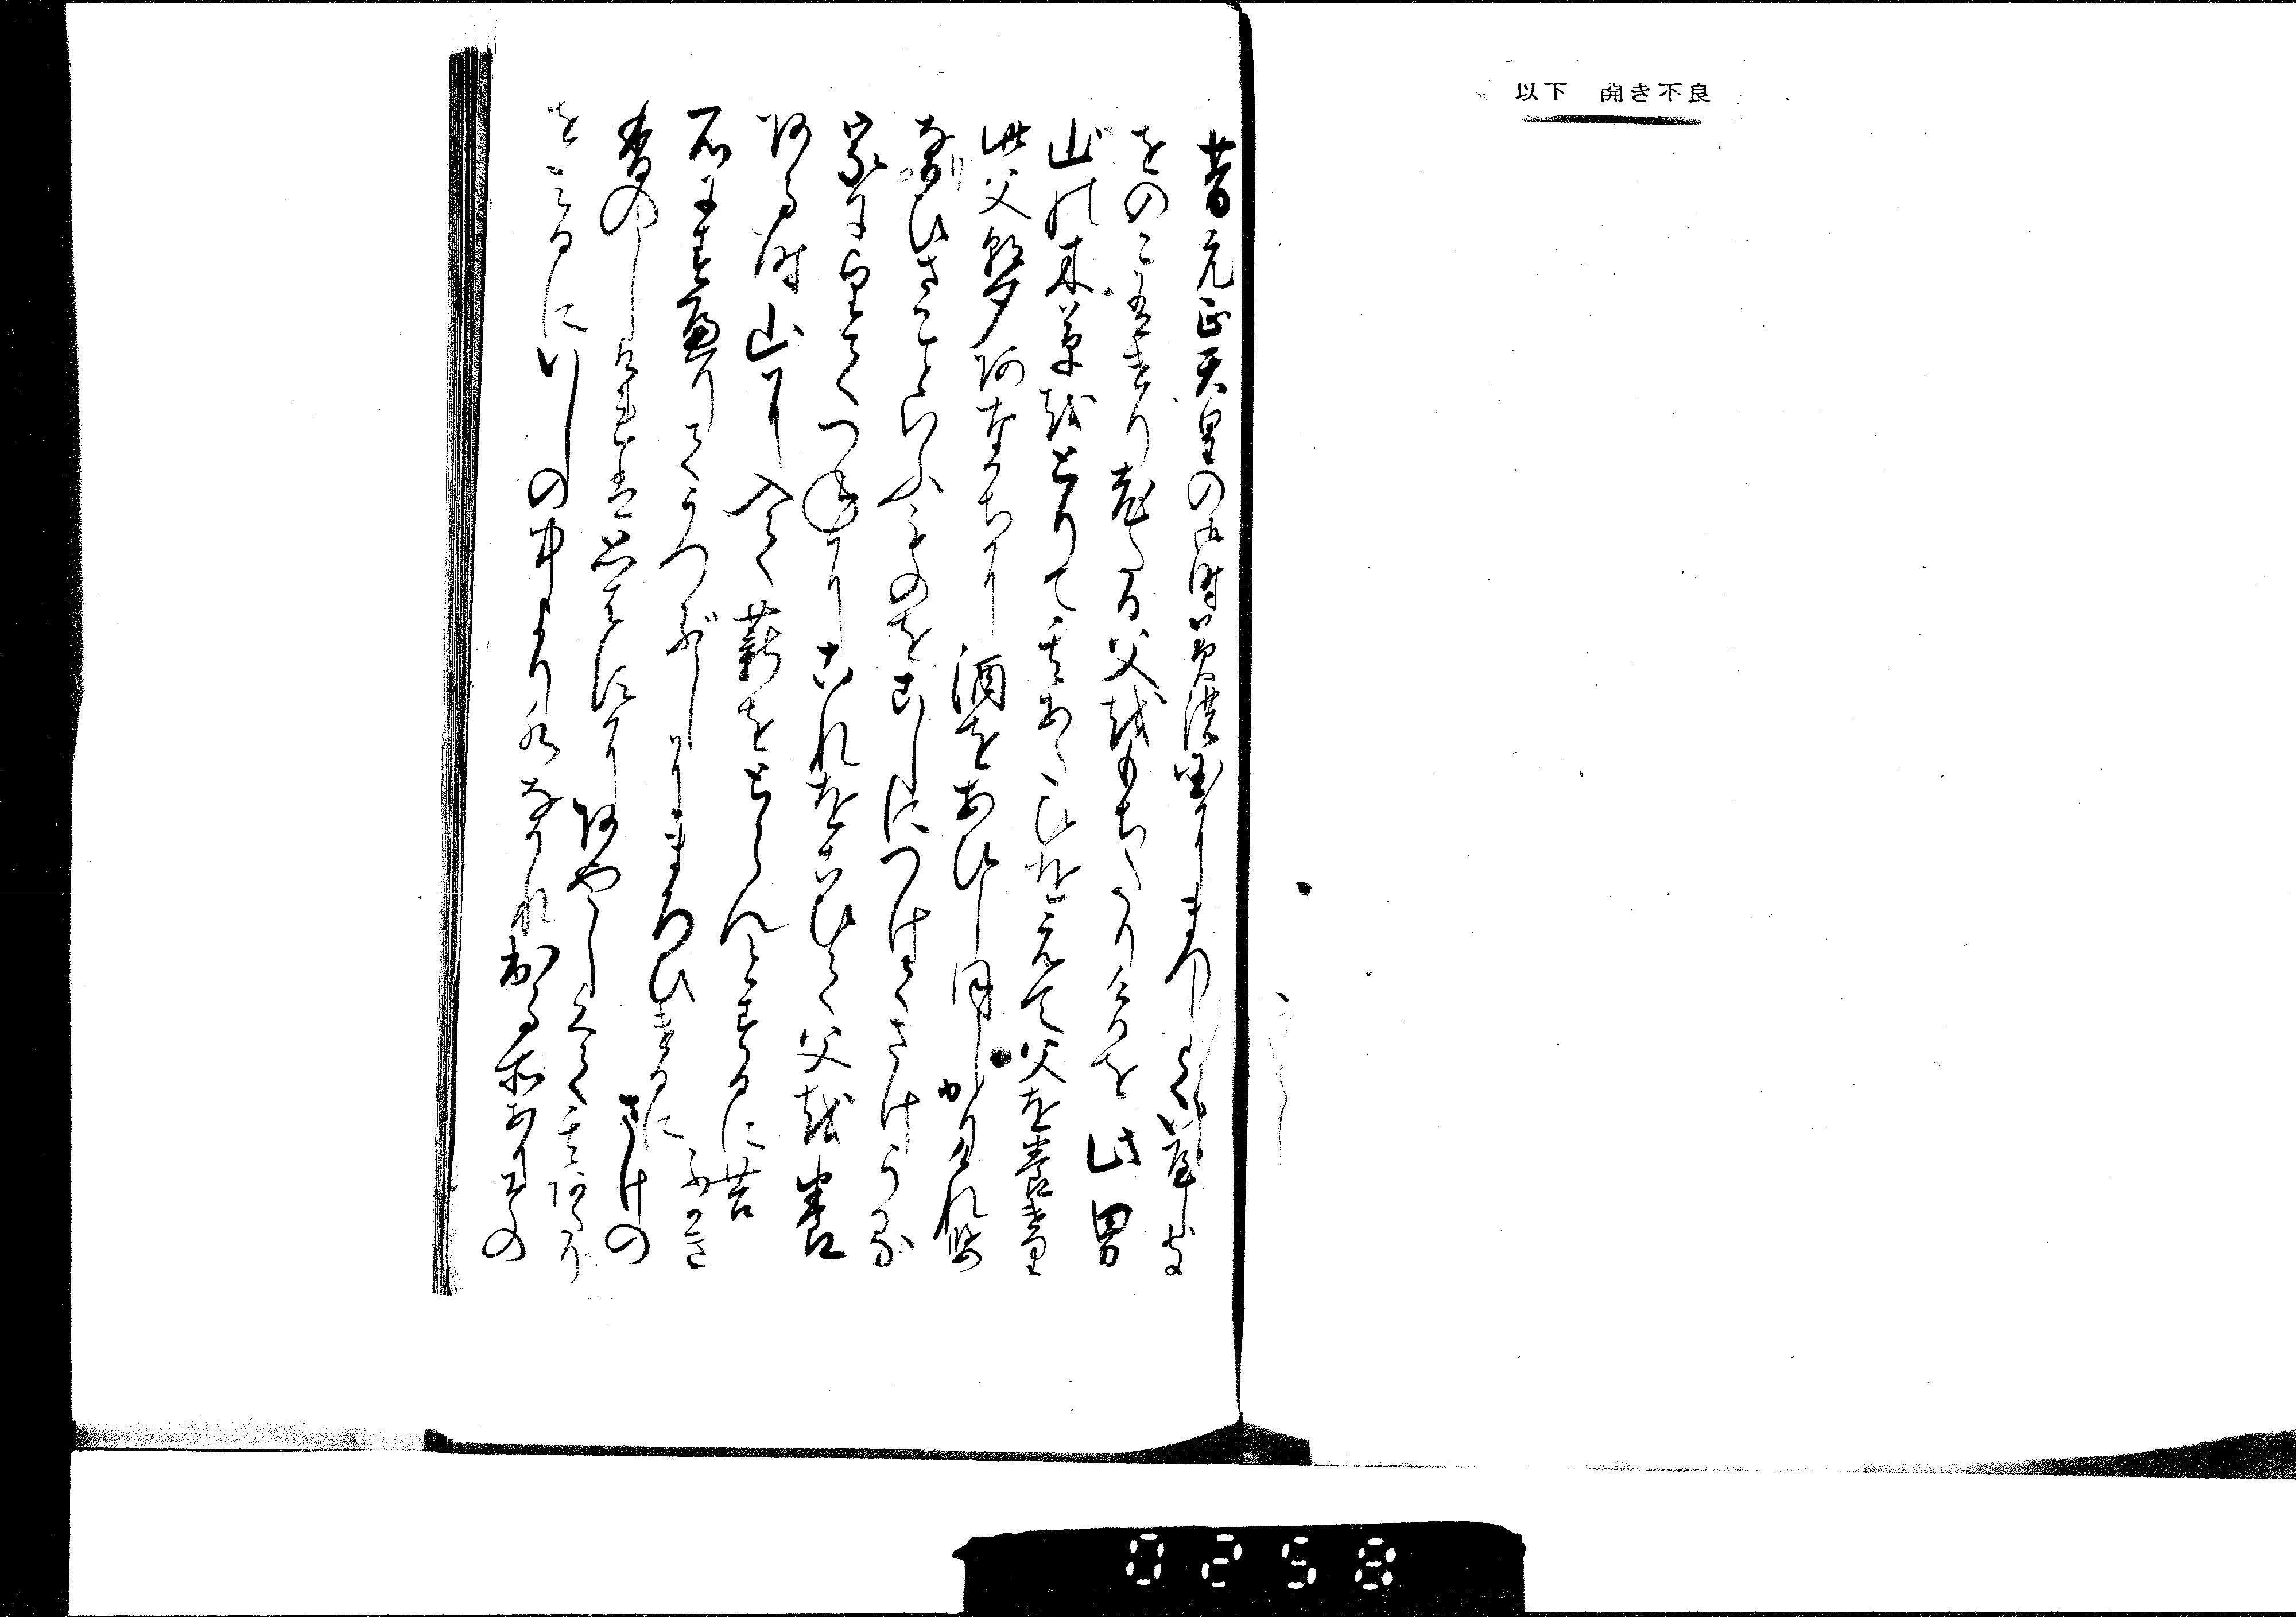 昔元正天皇の御時美濃国にまつしくいやしき
をのこ有けり老たる父をもちたりけるを此男
山の木草をとりて其あたひをえて父を養けり
此父朝夕あなかちに酒をあひしほしかりけれは
なりひさこといふ物をこしにつけてさけうる
家に行てつねにこれをこひて父を養
ある時山に入て薪をとらんとするに苔ふかき
石にすへりてうつふしにまろひたりけるに
さけの香のしけれは思はすにあやしくて其あたり
をみるにいしの中より水なかれ出る所ありその
以下 開き不良
0258